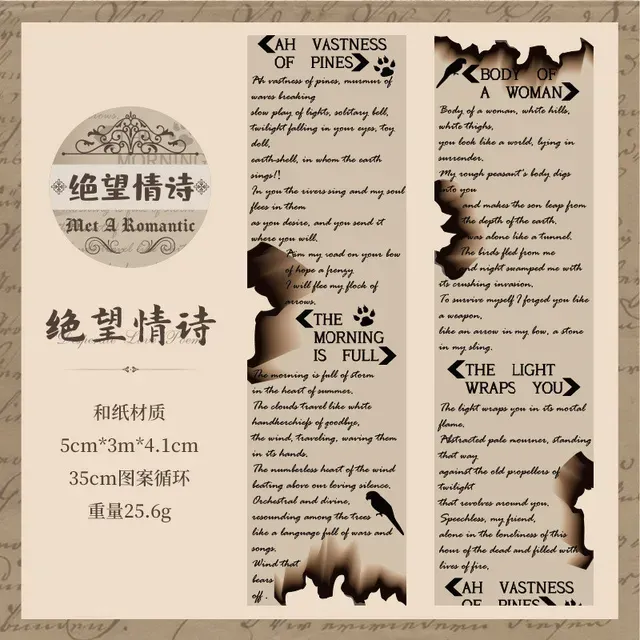 MORNING
绝望情诗
Met A Romantic
绝望情诗
和纸材质
5cm*3m*4.1cm
35cm图案循环
重量25.6g
AH VASTNESS
OF PINES
Ah vastness of pines, murmur of
waves breaking
slow play of lights, solitary bell,
twilight falling in your eyes, toy
doll,
earth-shell, in whom the earth
sings!!
In you the rivers sing and my soul
flees in them
as you desire, and you send it
where you will.
Aim my road on your bow
of hope a frenzy
I will flee my flock of
arrows.
THE
MORNING
IS FULL
The morning is full of storm
in the heart of summer.
The clouds travel like white
handkerchiefs of goodbye,
the wind, traveling, waving them
in its hands.
The numberless heart of the wind
beating above our loving silence.
Orchestral and divine,
resounding among the trees
like a language full of wars and
songs.
Wind that
bears
off.
BODY OF
A WOMAN
Body of a woman, white hills,
white thighs,
you look like a world, lying in
surrender.
My rough peasant's body digs
into you
and makes the son leap from
the depth of the earth.
was alone like a tunnel.
The birds fled from me
and night swamped me with
its crushing invasion.
To survive myself I forged you like
a weapon,
like an arrow in my bow, a stone
in my sling.
THE LIGHT
WRAPS YOU
The light wraps you in its mortal
flame.
Abstracted pale mourner, standing
that way
against the old propellers of
twilight
that revolves around you.
Speechless, my friend,
alone in the loneliness of this
hour of the dead and filled with
lives of fire.
AH VASTNESS
OF PINES